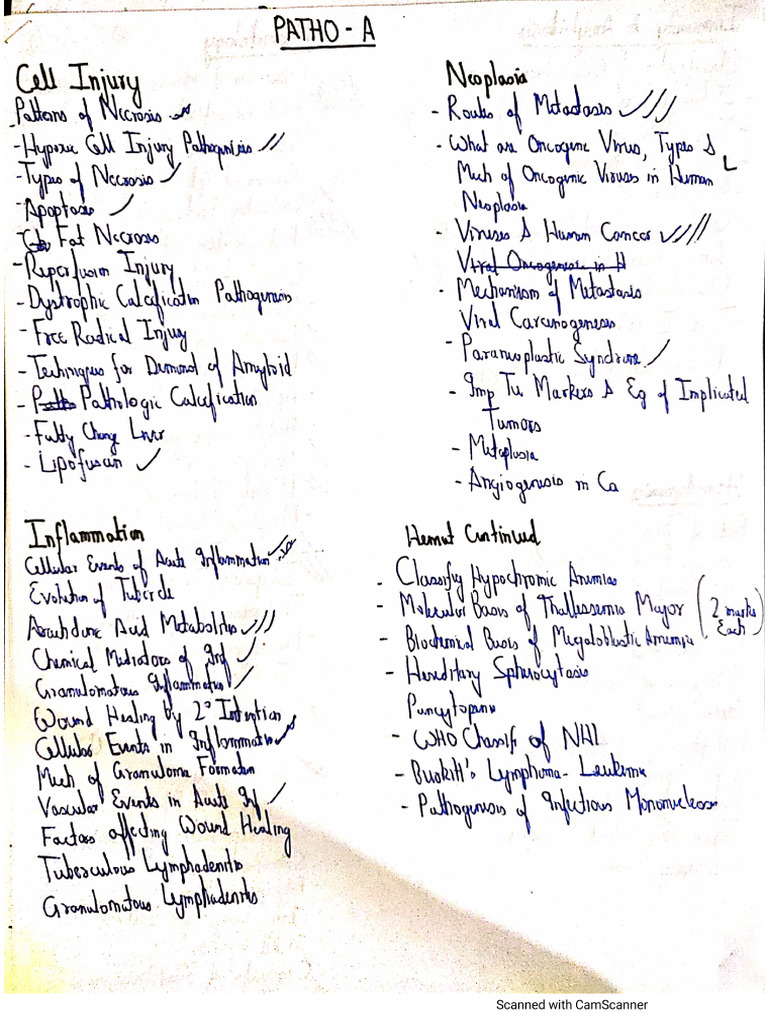 PATHO - A
Cell Injury
- Patterns of Necrosis
- Hypoxic Cell Injury Pathogenesis
- Types of Necrosis
- Apoptosis
- Fat Necrosis
- Reperfusion Injury
- Dystrophic Calcification Pathogenesis
- Free Radical Injury
- Techniques for Demonst of Amyloid
- Pathologic Calcification
- Fatty Change Liver
- Lipofuscin
Inflammation
Cellular Events of Acute Inflammation
Evolution of Tubercle
Arachdonic Acid Metabolites
Chemical Mediators of Inf
Granulomatous Inflammation
Wound Healing by 2° Intention
Cellular Events in Inflammation
Mech of Granuloma Formation
Vascular Events in Acute Inf
Factors affecting Wound Healing
Tuberculous Lymphadenitis
Granulomatous Lymphadenitis
Neoplasia
- Routes of Metastases
- What are Oncogenic Virus, Types &
Mech of Oncogenic Viruses in Human
Neoplasia
- Viruses & Human Cancer
Viral Oncogenesis in H
- Mechanism of Metastasis
Viral Carcinogenesis
- Paraneoplastic Syndrome
- Imp Tu Markers & Eg of Implicated
Tumors
- Metaplasia
- Angiogenesis in Ca
Hemat Continued
- Classify Hypochromic Anemias
- Molecular Basis of Thallessemia Major (2 marks
- Biochemical Basis of Megaloblastic Anemia Each)
- Hereditary Spherocytosis
Pancytopenia
- WHO Classifi of NHL
- Burkitt's Lymphoma - Leukemia
- Pathogenesis of Infectious Mononucleosis
Scanned with CamScanner